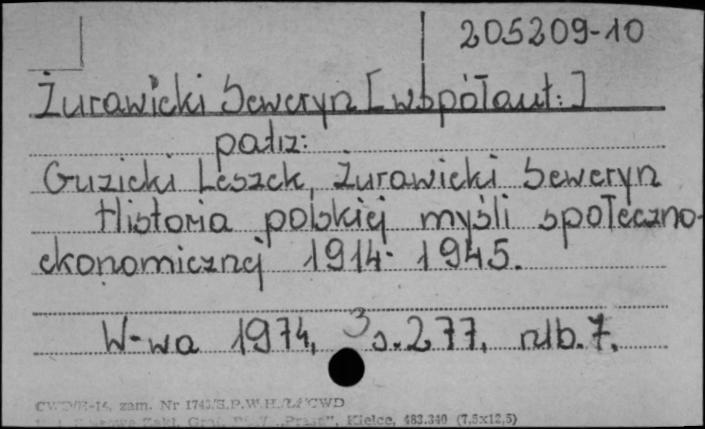 205209-10
Żurawicki Seweryn [współaut.]
patrz:
Guzicki Leszek, Żurawicki Seweryn
Historia polskiej myśli społeczno-
ekonomicznej 1914-1945.
W-wa 1974, s. 277, nlb. 7.
zam. Nr Kielce, 483.340 (7,5x12,5)